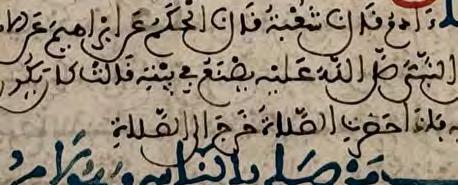 ءادم قال نا شعبة قال نا الحكم عن ابراهيم عن الا
النبي صلى الله عليه يصنع في بيته قالت كان يكون
فاذا حضرت الصلاة خرج الى الصلاة
من صلى بالناس وهو لا ير